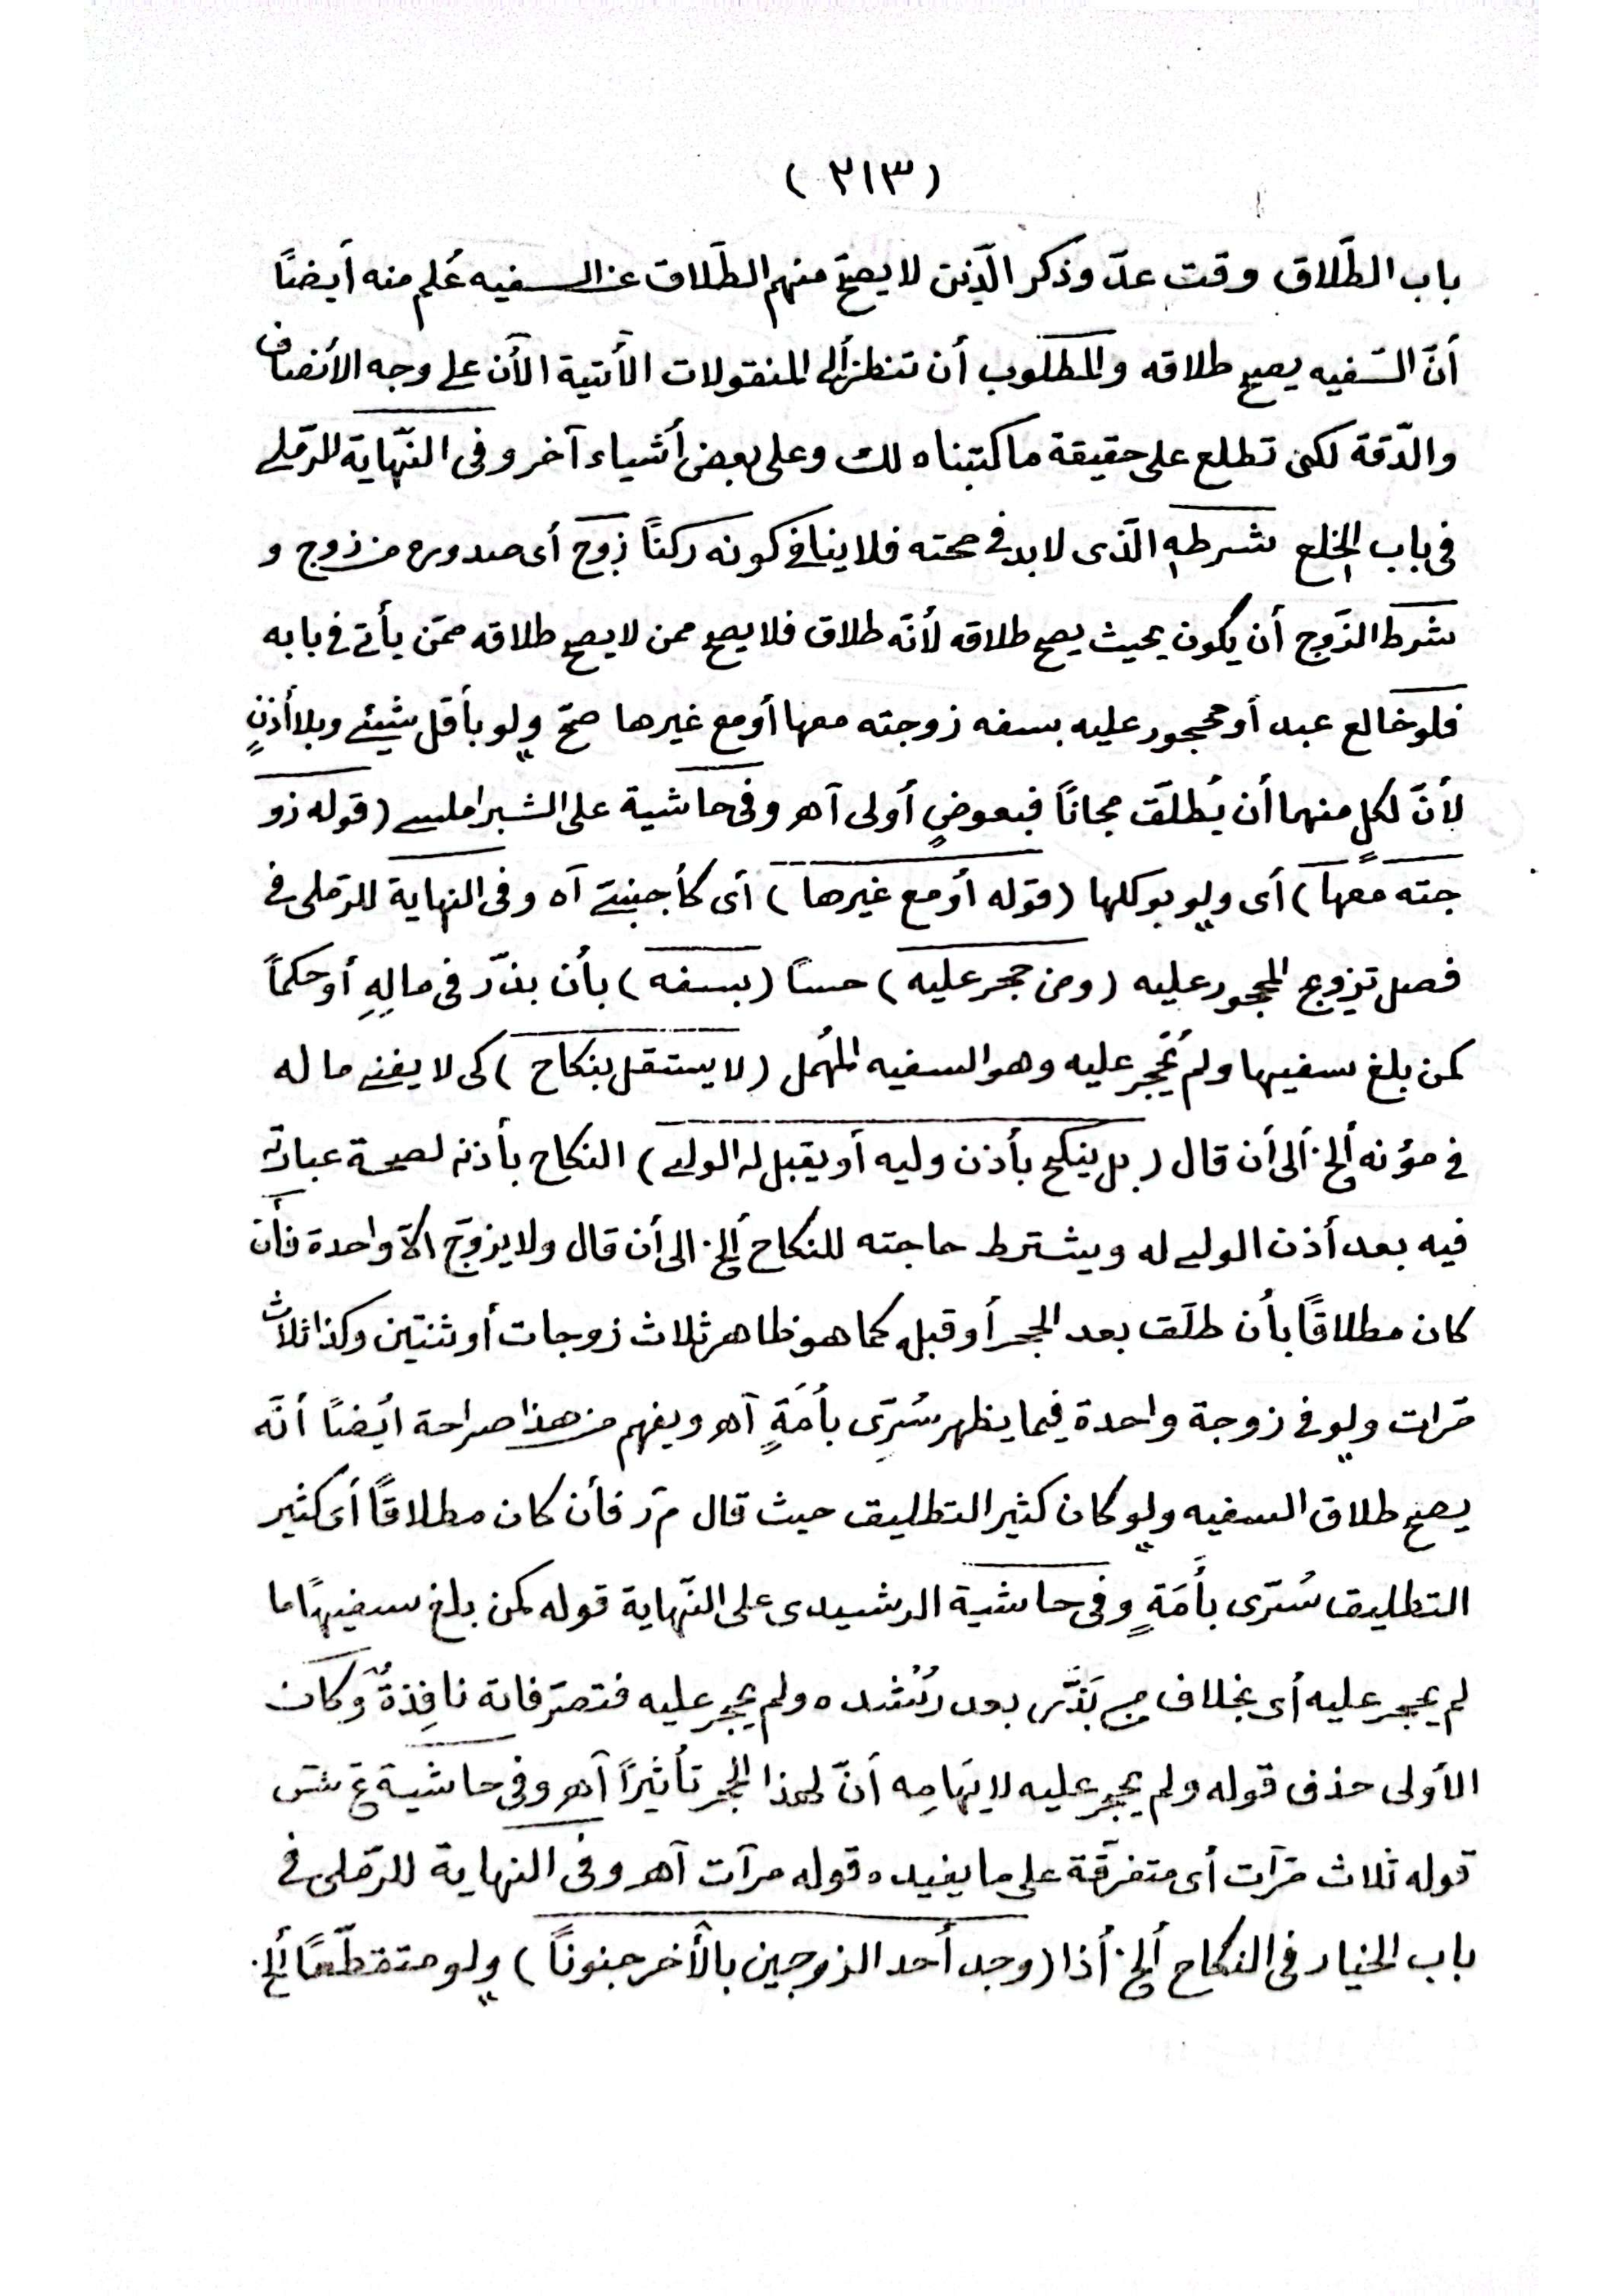 (٢١٣)
باب الطّلاق وقت عدّ وذكر الّذين لا يصحّ منهم الطّلاق عن السفيه عُلم منه أيضًا
أنّ السّفيه يصح طلاقه والمطلوب أن تنظر ألى المنقولات الأتية الأن على وجه الأنصاف
والدّقة لكى تطلع على حقيقة ما كتبناه لك وعلى بعض أشياء آخر وفى النّهاية للرّملى
فى باب الخلع شرطه الّذى لابد فى صحته فلا ينافى كونه ركنًا زوج أى صدوره من زوج و
شرط الزّوج أن يكون بحيث يصح طلاقه لأنّه طلاق فلا يصح ممن لا يصح طلاقه ممّن يأتى فى بابه
فلو خالع عبد أو محجور عليه بسفه زوجته معها أو مع غيرها صحّ ولو بأقل شيئى وبلا أذنٍ
لأنّ لكلٍ منهما أن يُطلّق مجانًا فبعوضٍ أولى آهر وفى حاشية على الشبراملسى (قوله زو
جته معها) أى ولو بوكلها (قوله أو مع غيرها) أى كأجنبى آه وفى النهاية للرملى فى
فصل تزوج المحجور عليه (ومن حجر عليه) حسًا (بسفه) بأن بذّر فى مالِهِ أو حكماً
كمن بلغ سفيها ولم يُحجر عليه وهو السفيه المُهمل (لا يستقل بنكاح) كى لا يفنى ما له
فى مؤنه ألخ ألى أن قال (بل ينكح بأذن وليه أو يقبل له الولى) النكاح بأذنه لصحة عبارته
فيه بعد أذن الولى له ويشترط حاجته للنكاح ألخ الى أن قال ولا يزوّج ألاّ واحدة فأن
كان مطلاقًا بأن طلّق بعد الحجر أو قبله كما هو ظاهر ثلاث زوجات أو ثنتين وكذا ثلاث
مرّات ولو فى زوجة واحدة فيما يظهر سُرِّى بأَمَةٍ آهر ويفهم من هذا صراحة ايُضًا أنّه
يصح طلاق السفيه ولو كان كثير التطليق حيث قال م ر فأن كان مطلاقًا أى كثير
التطليق سُرّى بأَمَةٍ وفى حاشية الرشيدى على النّهاية قوله كمن بلغ سفيهًا ما
لم يحجر عليه أى بخلاف من بَذّر بعد رُشده ولم يحجر عليه فتصرّفاته نافِذةٌ وكان
الأولى حذف قوله ولم يحجر عليه لايهَامِه أنّ لهذا الحجر تأثيرًا آهر وفى حاشية ع ش
قوله ثلاث مرّات أى متفرقّة على ما يفيده قوله مرآت آهر وفى النهاية للرّملى فى
باب الخيار فى النكاح ألخ أذا (وجد أحد الزوجين بالأخر جنونًا) ولو متقطّعًا ألخ